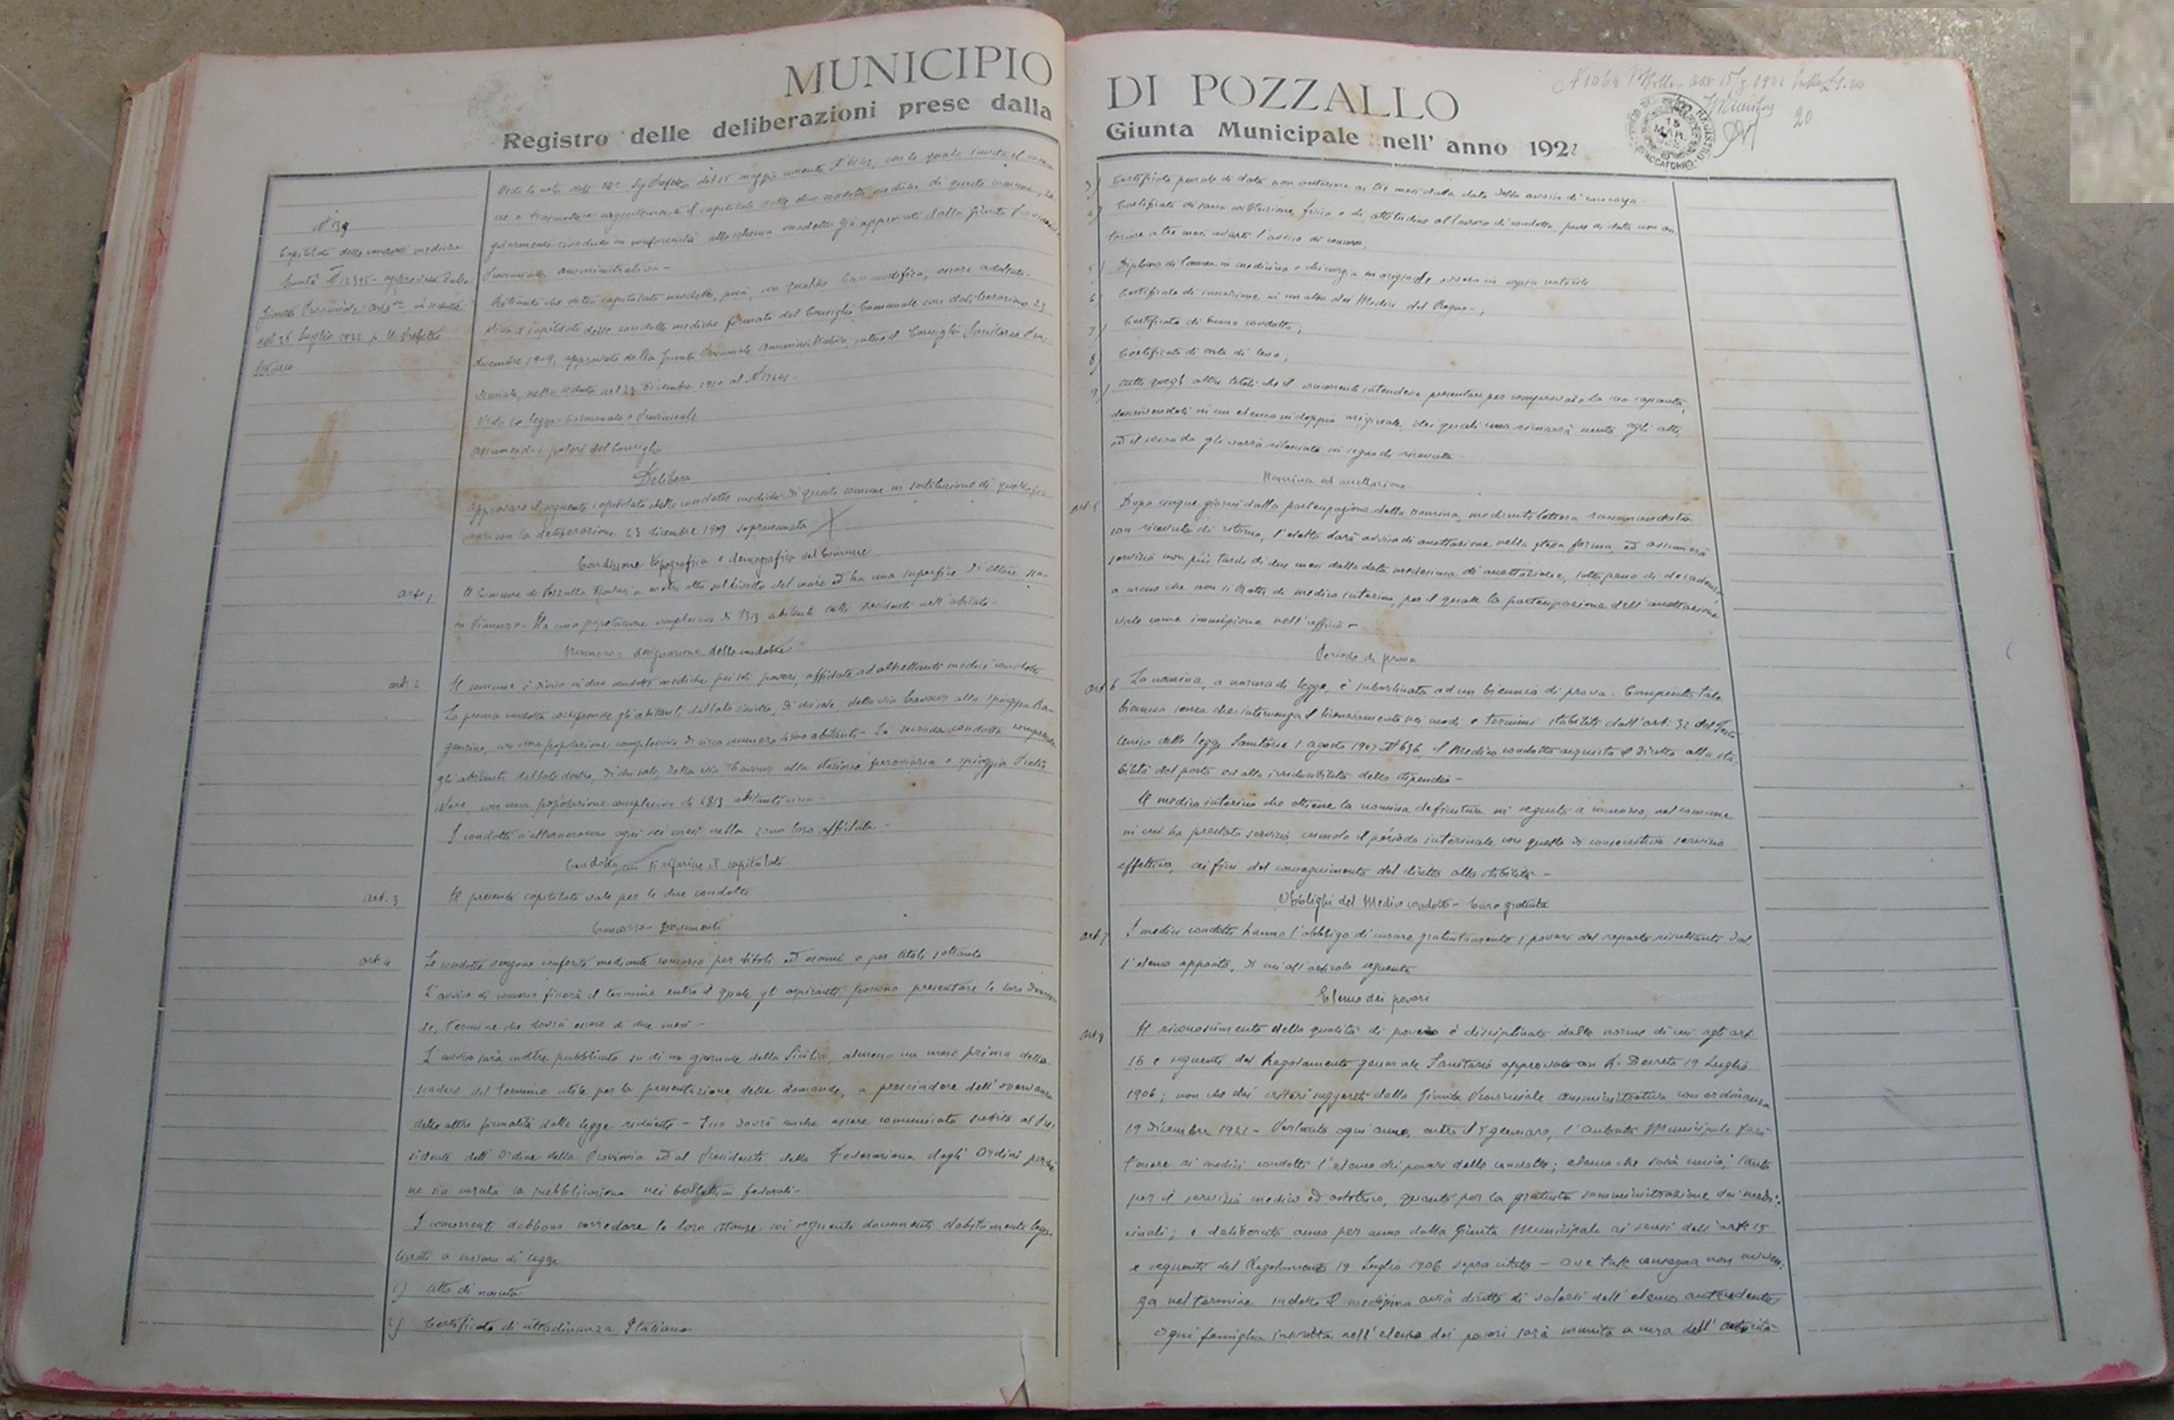 MUNICIPIO
Registro delle deliberazioni prese dalla
N 39
Capitolato delle condotte mediche
approvato dalla
Giunta Provinciale in seduta
del 28 Luglio 1922 p. Il Prefetto
Vista la nota dell' Sig. Prefetto del maggio corrente con la quale invita il
a trasmettere urgentemente il capitolato delle due condotte mediche di questo comune,
in conformità allo schema modello già approvato dalla Giunta
Provinciale amministrativa -
Ritenuto che detto capitolato modello, può, con qualche lieve modifica, essere adottato -
Visto il capitolato delle condotte mediche formato dal Consiglio Comunale con deliberazione 23
dicembre 1909, approvato dalla Giunta Provinciale amministrativa, sentito il Consiglio Sanitario
nella seduta del 23 Dicembre 1910 al N
Vista la legge Comunale e Provinciale
assumendo i poteri del Consiglio
Delibera
approvare il seguente capitolato delle condotte mediche di questo comune in sostituzione di quello
con la deliberazione 23 dicembre 1909 sopracennata
Condizione topografica e demografica del Comune
art. 1 Il Comune di Pozzallo a metri otto sul livello del mare ed ha una superficie di ettare
in pianura - Ha una popolazione complessiva di abitanti tutti residenti nell'abitato -
Numero e designazione delle condotte
art. 2 Il comune è diviso in due condotte mediche pei soli poveri, affidate ad altrettanti medici condotti
La prima condotta comprende gli abitanti, dal lato sinistro, di chi sale, della via Cavour alla spiaggia
con una popolazione complessiva di circa numero abitanti - La seconda condotta comprende
gli abitanti dal lato destro, di chi sale, della via Cavour alla stazione ferroviaria e spiaggia
con una popolazione complessiva di 4813 abitanti circa -
I condotti si alterneranno ogni sei mesi nella zona loro affidata -
Condotta cui si riferisce il capitolato
art. 3 Il presente capitolato vale per le due condotte
Concorso - Documenti
art. 4 Le condotte vengono conferite mediante concorso per titoli ed esami o per titoli soltanto
L'avviso di concorso fisserà il termine entro il quale gli aspiranti possono presentare le loro
de, termine che dovrà essere di due mesi -
L'avviso sarà inoltre pubblicato su di un giornale della Sicilia, almeno un mese prima della
scadere del termine utile per la presentazione delle domande, a prescindere dell'osservanza
delle altre formalità dalla legge richieste - Esso dovrà anche essere comunicato subito al Pre
sidente dell'Ordine della Provincia ed al Presidente della Federazione degli Ordini perchè
ne sia curata la pubblicazione nei bollettini federali -
I concorrenti debbono corredare le loro istanze coi seguenti documenti debitamente lega
lizzati a norma di legge
1) Atto di nascita
2) Certificato di cittadinanza Italiana
DI POZZALLO
Giunta Municipale nell' anno 1922
20
3) Certificato penale di data non anteriore ai tre mesi dalla data dello avviso di concorso
4) Certificato di sana costituzione fisica e di attitudine al lavoro di condotta, pure di data non an
teriore a tre mesi avanti l'avviso di concorso;
5) Diploma di laurea in medicina e chirurgia in originale ovvero in copia notarile
6) Certificato di iscrizione in un albo dei Medici del Regno -;
7) Certificato di buona condotta;
8) Certificato di esito di leva;
9) Tutti quegli altri titoli che il concorrente intendesse presentare per comprovare la sua capacità,
descrivendoli in un elenco in doppio originale, dei quali uno rimarrà unito agli atti,
ed il secondo gli verrà rilasciato in segno di ricevuta -
Nomina ed accettazione
art. 5 Dopo cinque giorni dalla partecipazione della nomina, mediante lettera raccomandata
con ricevuta di ritorno, l'eletto darà avviso di accettazione nella stessa forma ed assumerà
servizio non più tardi di due mesi dalla data medesima di accettazione, sotto pena di decadenza
a meno che non si tratti di medico interino, per il quale la partecipazione dell'accettazione
vale come immissione nell'ufficio -
Periodo di prova
art. 6 La nomina, a norma di legge, è subordinata ad un biennio di prova. Compiuto tale
biennio senza che intervenga il licenziamento nei modi e termini stabiliti dall'art. 32 del Testo
Unico delle leggi Sanitarie 1 agosto 1907 N 636 il Medico condotto acquista il diritto alla sta
bilità del posto ed alla irriducibilità dello stipendio -
Il medico interino che ottiene la nomina definitiva in seguito a concorso, nel comune
in cui ha prestato servizio, cumula il periodo interinale con quello di consecutivo servizio
effettivo, ai fini del conseguimento del diritto alla stabilità -
Obblighi del Medico condotto - Cura gratuita
art. 7 I medici condotti hanno l'obbligo di curare gratuitamente i poveri del reparto risultante dal
l'elenco apposito, di cui all'articolo seguente
Elenco dei poveri
art. 8 Il riconoscimento della qualità di povero è disciplinato dalle norme di cui agli art.
16 e seguenti del Regolamento generale Sanitario approvato con R. Decreto 19 Luglio
1906; non che dai criteri suggeriti dalla Giunta Provinciale amministrativa con ordinanza
19 Dicembre 1921 - Pertanto ogni anno, entro il 5 gennaro, l'autorità Municipale farà
tenere ai medici condotti l'elenco dei poveri della condotta; elenco che sarà unico, tanto
per il servizio medico ed ostetrico, quanto per la gratuita somministrazione dei medi
cinali; e deliberato anno per anno dalla Giunta Municipale ai sensi dell'art. 15
e seguenti del Regolamento 19 Luglio 1906 sopra citato - ove tale consegna non avven
ga nel termine indetto il medesimo avrà diritto di valersi dell'elenco antecedente
Ogni famiglia inscritta nell'elenco dei poveri sarà munita a cura dell'autorità